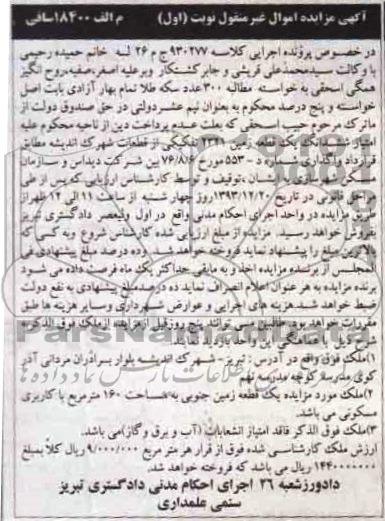 آگهی مزایده اموال غیر منقول نوبت (اول) م الف ۱۸۴۰۰سافی
در خصوص پرونده اجرایی کلاسه ۹۳۰۲۷۷ج م ۲۶ له خانم حمیده رحیمی
با وکالت سیدمحمدعلی قریشی و جابر کشتکار وبرعلیه اصغر،صفیه،روح انگیز
همگی اسحقی به خواسته مطالبه ۳۰۰عدد سکه طلا تمام بهار آزادی بابت اصل
خواسته و پنج درصد محکوم به بعنوان نیم عشردولتی در حق صندوق دولت از
ماترک مرحوم حبیب اسحقی که بعلت عدم پرداخت دین از ناحیه محکوم علیه
امتیاز ششدانگ یک قطعه زمین ۲۲۴۱ تفکیکی از قطعات شهرک اندیشه مطابق
قرارداد واگذاری شماره د – ۵۵۳ مورخ ۷۶/۸/۶ بین شرکت دیداس و سازمان
مسکن و شهرسازی توقیف و توسط کارشناس ارزیابی که پس از طی
مراحل قانونی در تاریخ ۱۳۹۳/۱۲/۲۰روز چهار شنبه از ساعت ۱۱ الی ۱۲ ظهراز
طریق مزایده در واحد اجرای احکام مدنی واقع در اول ولیعصر دادگستری تبریز
بفروش خواهد رسید. مزایده از مبلغ ارزیابی شده کارشناس شروع وبه کسی که
بالاترین مبلغ را پیشنهاد نماید فروخته خواهد شد. و ده درصد مبلغ پیشنهادی فی
المجلس از برنده مزایده اخذ و به مابقی حداکثر یک ماه فرصت داده می شود
برنده مزایده به هر عنوان اعلام انصراف نماید ده درصدمبلغ پیشنهادی به نفع دولت
ضبط خواهد شد.هزینه های اجرایی و عوارض شهرداری وسایر هزینه ها طبق
مقررات خواهد بود. طالبین می توانند پنج روزقبل ازمزایده از ملک فوق الذکر
با هماهنگی این واحد بازدید نمایند.
۱)ملک فوق واقع در آدرس : تبریز- شهرک اندیشه بلوار برادران مردانی آذر
کوی مدرسه کوچه مدرسه نهم
۲)ملک مورد مزایده یک قطعه زمین جنوبی به مساحت ۱۶۰ مترمربع با کاربری
مسکونی می باشد.
۳)ملک فوق الذکر فاقد امتیاز انشعابات (آب و برق وگاز)می باشد.
ارزش ملک کارشناسی شده فوق از قرار هر متر مربع ۹/۰۰۰/۰۰۰ ریال کلاً بمبلغ
۱۴۴۰۰۰۰۰۰۰ ریال می باشد که فروخته خواهد شد.
دادورزشعبه ۲۶ اجرای احکام مدنی دادگستری تبریز
ستمی علمداری